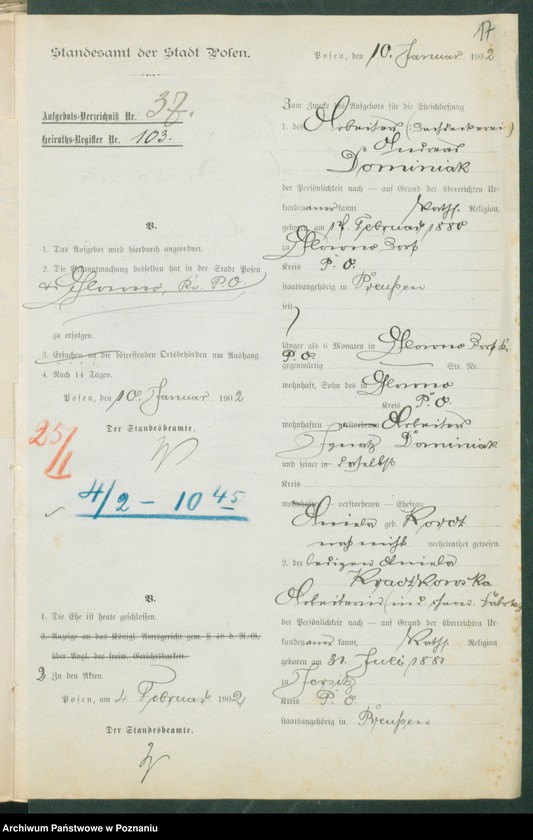 17
Standesamt der Stadt Posen.
Posen, den 10. Januar 1902
Aufgebots-Verzeichniß Nr. 37.
Heiraths-Register Nr. 103.
V.
1. Das Aufgebot wird hierdurch angeordnet.
2. Die Bekanntmachung desselben hat in der Stadt Posen
Glowno, Kr. P. O.
zu erfolgen.
3. Ersuchen an die betreffenden Ortsbehörden um Aushang
4. Nach 14 Tagen.
Posen, den 10. Januar 1902
Der Standesbeamte.
25/1
4/2 - 10 45
V.
1. Die Ehe ist heute geschlossen.
2. Anzeige an das Königl. Amtsgericht gem. § 48 d. R. G.
über Angl. der freiw. Gerichtsbarkeit.
2 Zu den Akten.
Posen, am 4 Februar 1902
Der Standesbeamte.
Zum Zwecke des Aufgebots für die Eheschließung
1. des Arbeiter
Andreas
Dominiak
der Persönlichkeit nach — auf Grund der überreichten Ur-
kunden anerkannt Kath. Religion,
geboren am Februar 1880
zu Glowno Dorf
Kreis P. O.
staatsangehörig in Preußen
seit
länger als 6 Monaten in Glowno Dorf
P. O.
gegenwärtig Str. Nr.
wohnhaft, Sohn des in Glowno
Kreis P. O.
wohnhaften — verstorbenen Arbeiter
Ignatz Dominiak
und seiner in daselbst
Kreis
wohnhaften — verstorbenen — Ehefrau
Aniela geb.
noch nicht verheirathet gewesen.
2. der ledigen Aniela
Kradtkowska
Arbeiterin
der Persönlichkeit nach — auf Grund der überreichten Ur-
kunden anerkannt, Kath. Religion
geboren am 31. Juli 1881
zu Jersitz
Kreis P. O.
staatsangehörig in Preußen
Archiwum Państwowe w Poznaniu